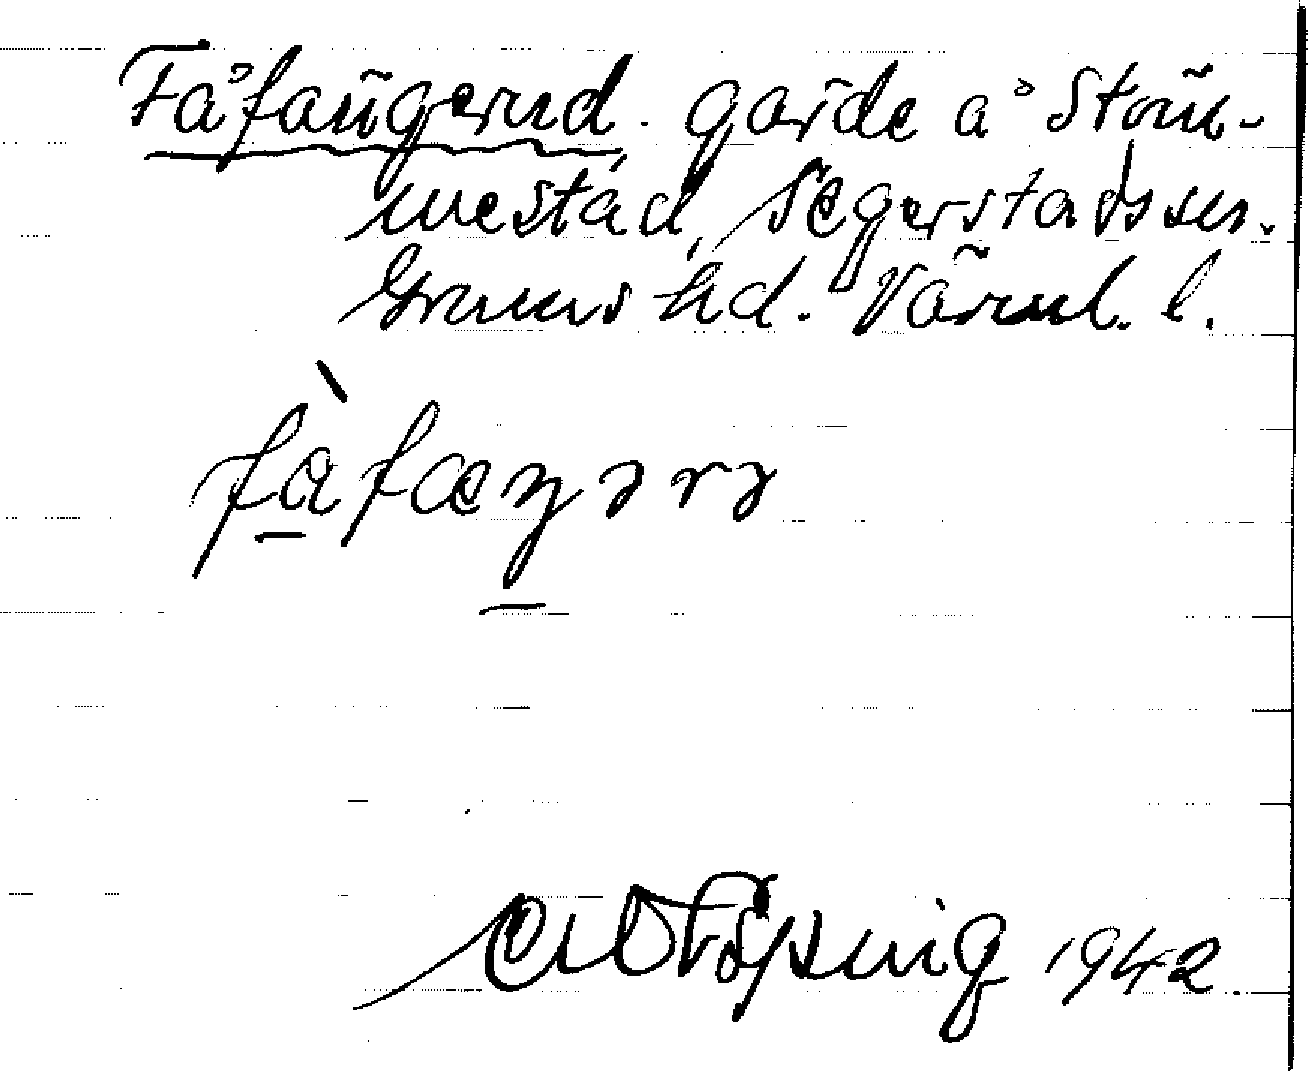 Fåfängerud. gärde å Stöm-
mestad, Segerstads sn.
Grums hd. Värml. l.
fàfæŋərə
1942